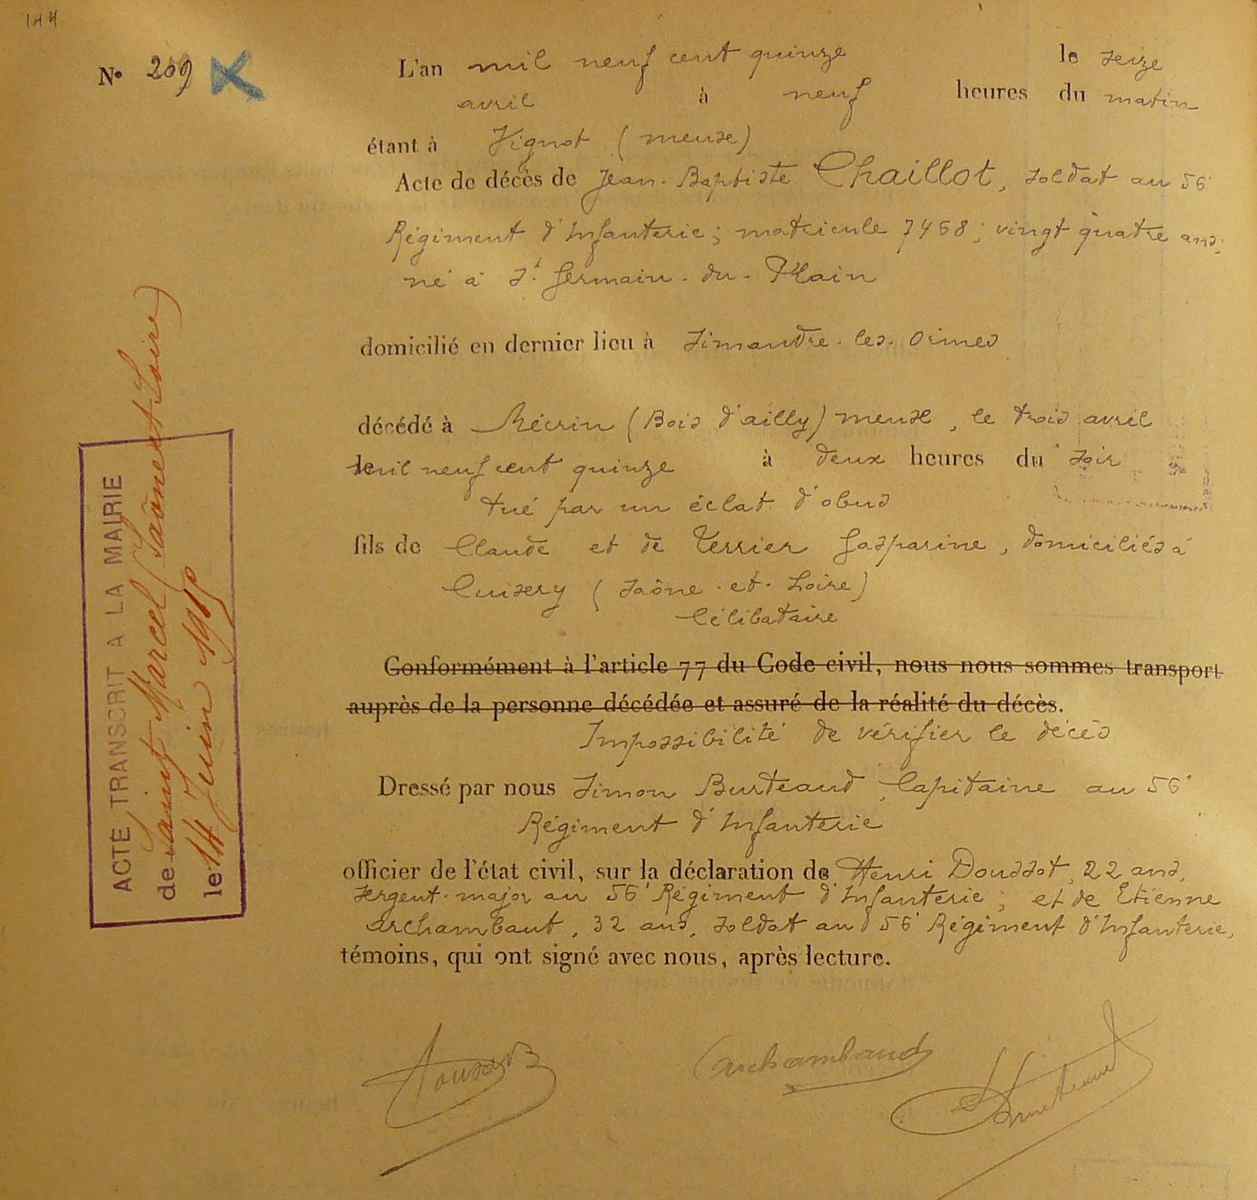 144
N° 209
L'an mil neuf cent quinze le seize
avril à neuf heures du matin
étant à Vignot (meuse)
Acte de décès de Jean-Baptiste Chaillot, soldat au 56e
Régiment d'Infanterie; matricule 7468; vingt quatre ans;
né à St Germain-du-Plain
domicilié en dernier lieu à Simandre-les-Ormes
décédé à Mécrin (Bois d'ailly) meuse, le trois avril
mil neuf cent quinze à deux heures du soir
tué par un éclat d'obus
fils de Claude et de Terrier Gasparine, domiciliés à
Cuisery (Saône-et-Loire)
Célibataire
Conformément à l'article 77 du Code civil, nous nous sommes transport
auprès de la personne décédée et assuré de la réalité du décès.
Impossibilité de vérifier le décès
Dressé par nous Simon Burteaud, Capitaine au 56e
Régiment d'Infanterie
officier de l'état civil, sur la déclaration de Henri Doussot, 22 ans,
sergent-major au 56e Régiment d'Infanterie; et de Etienne
Archambaut, 32 ans, soldat au 56e Régiment d'Infanterie,
témoins, qui ont signé avec nous, après lecture.
Archambaud
ACTE TRANSCRIT A LA MAIRIE
de Saint Marcel (Saône et Loire)
le 14 Juin 1915